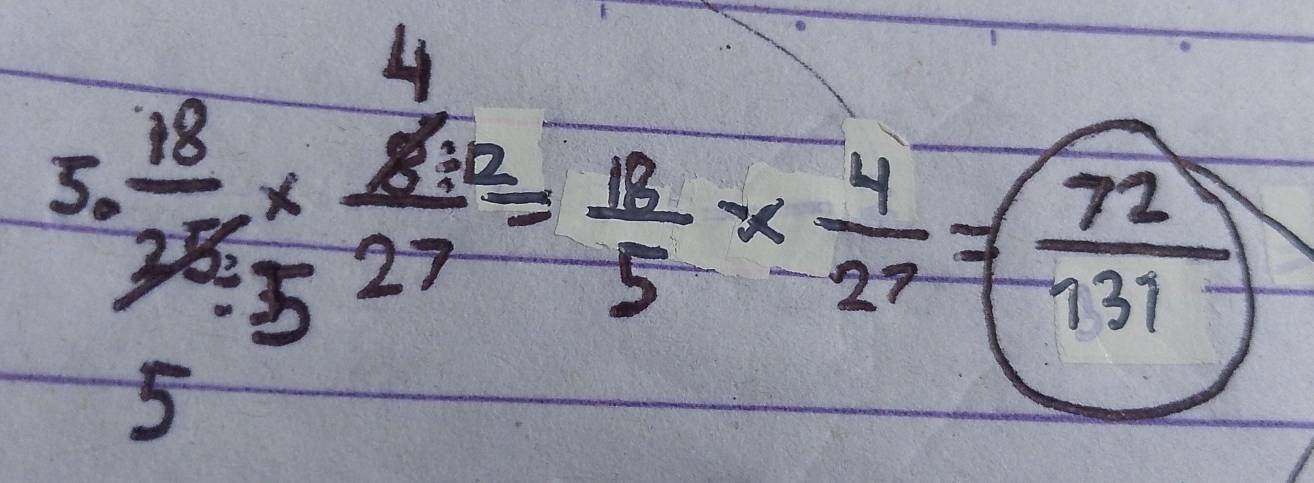 4
5. 18/25÷5 × 8÷2/27 = 18/5 × 4/27 = 72/131
5